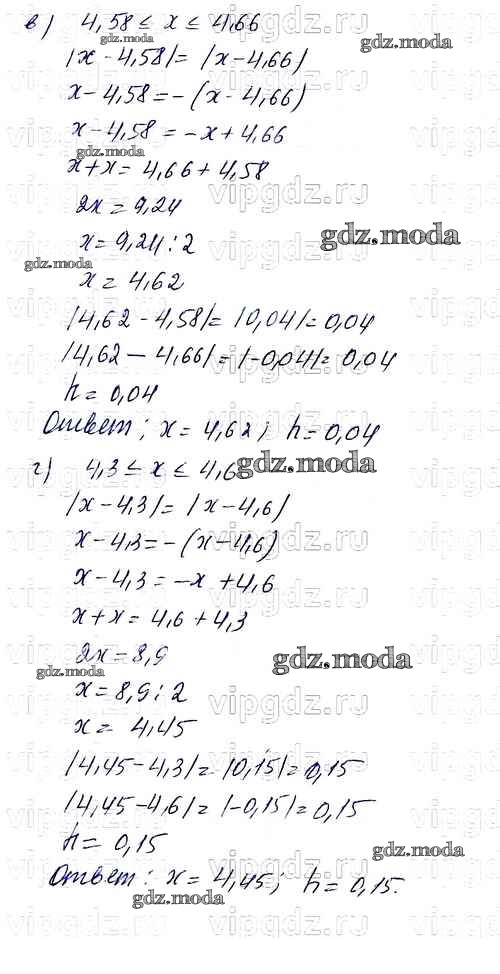 в) 4,58 ≤ x ≤ 4,66
|x - 4,58| = |x - 4,66|
x - 4,58 = - (x - 4,66)
x - 4,58 = - x + 4,66
x + x = 4,66 + 4,58
2x = 9,24
x = 9,24 : 2
x = 4,62
|4,62 - 4,58| = |0,04| = 0,04
|4,62 - 4,66| = |-0,04| = 0,04
h = 0,04
Ответ: x = 4,62; h = 0,04
г) 4,3 ≤ x ≤ 4,6
|x - 4,3| = |x - 4,6|
x - 4,3 = - (x - 4,6)
x - 4,3 = - x + 4,6
x + x = 4,6 + 4,3
2x = 8,9
x = 8,9 : 2
x = 4,45
|4,45 - 4,3| = |0,15| = 0,15
|4,45 - 4,6| = |-0,15| = 0,15
h = 0,15
Ответ: x = 4,45; h = 0,15.
gdz.moda
gdz.moda
gdz.moda
gdz.moda
gdz.moda
gdz.moda
gdz.moda
gdz.moda
gdz.moda
vipgdz.ru